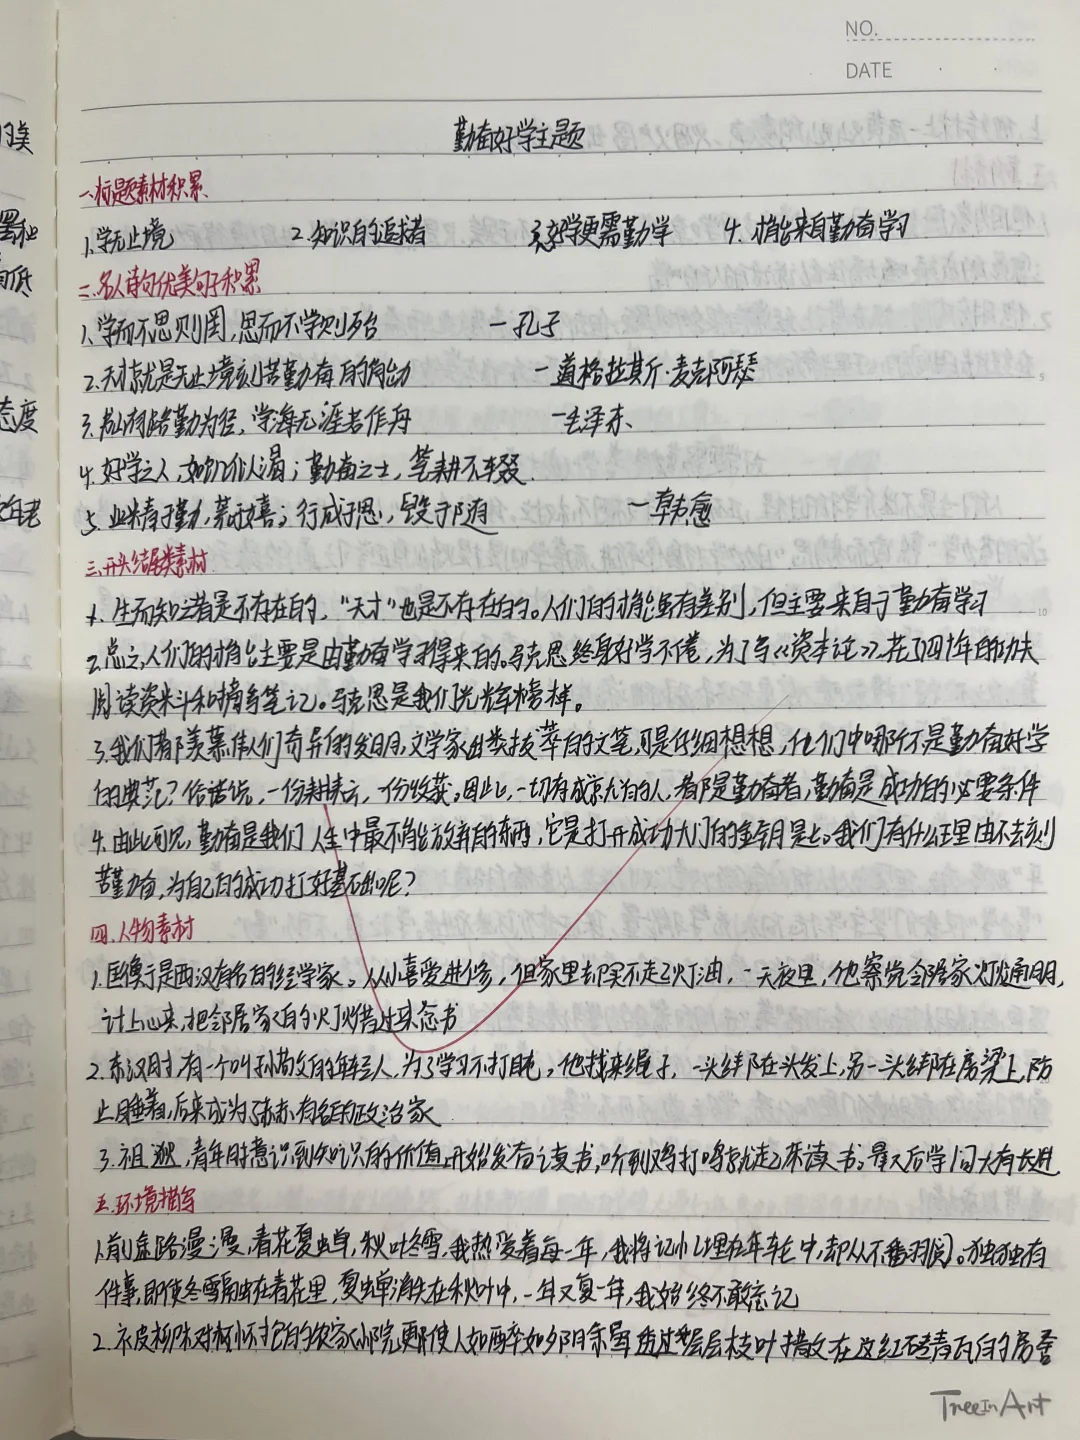 NO.
DATE
勤奋好学主题
一.标题素材积累
1.学无止境 2.知识的追求者 3.好学更需勤学 4.才能来自勤奋学习
二.名人诗句优美句子积累
1.学而不思则罔,思而不学则殆 一孔子
2.天才就是无止境刻苦勤奋的能动 一道格拉斯·麦克阿瑟
3.书山有路勤为径,学海无涯苦作舟 一毛泽东、
4.好学之人,如饥似渴;勤奋之士,笔耕不辍
5.业精于勤,荒于嬉;行成于思,毁于随 一韩愈
三.开头结尾类素材
1.生而知之者是不存在的,“天才”也是不存在的。人们的才能虽有差别,但主要来自于勤奋学习
2.总之,人们的才能主要是由勤奋学习得来的。马克思终身好学不倦,为了写《资本论》,花了四十年的功夫
阅读资料和摘写笔记。马克思是我们光辉榜样。
3.我们都羡慕伟人们奇异的发明,文学家出类拔萃的文笔,可是仔细想想,他们中哪个不是勤奋好学
的典范?俗话说,一份耕耘,一份收获。因此,一切有成就的人,都是勤奋者,勤奋是成功的必要条件
4.由此可见,勤奋是我们人生中最不能放弃的东西,它是打开成功大门的金钥匙。我们有什么理由不去刻
苦勤奋,为自己的成功打好基础呢?
四.人物素材
1.匡衡于是西汉有名的经学家。从小喜爱进修,但家里却买不起灯油,一天夜里,他察觉邻居家灯火通明,
计上心来,把邻居家的灯火借过来念书
2.东汉时,有一个叫孙敬的年轻人,为了学习不打盹,他找来绳子,一头绑在头发上,另一头绑在房梁上,防
止睡着,后来成为了赫赫有名的政治家
3.祖逖,青年时意识到知识的价值,开始发奋读书,听到鸡打鸣就起来读书,最后学问大有长进
五.环境描写
1.前途路漫漫,春花夏蝉,秋叶冬雪,我热爱着每一年,我将记忆埋在年轮中,却从不翻阅。独独有
件事,即使冬雪融在春花里,夏蝉消失在秋叶中,一年又复一年,我始终不敢忘记
2.农家小院更使人如醉如夕阳余晕透过层层枝叶撒在这红砖青瓦的房舍
TreeInArt